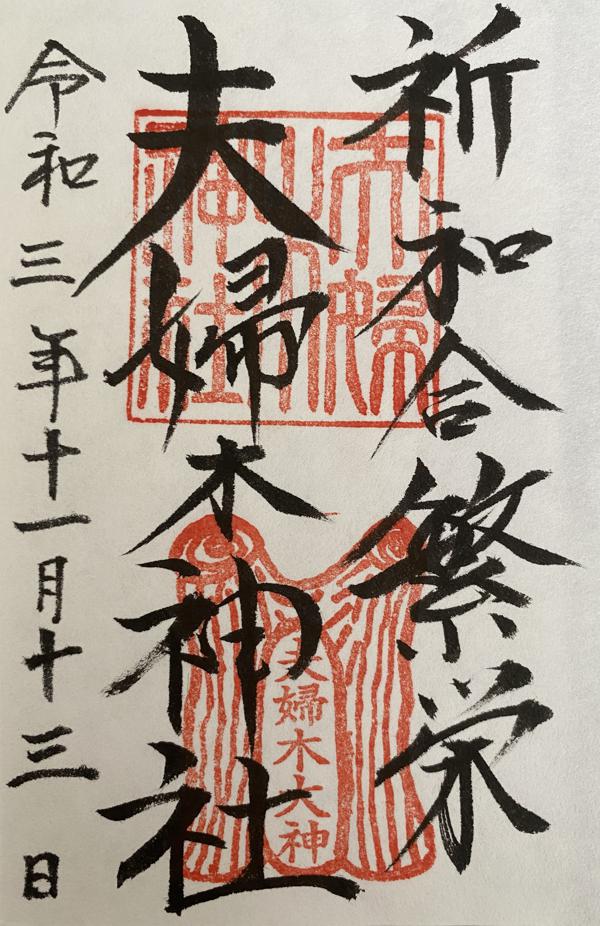 祈和合繁栄
夫婦木神社
令和三年十一月十三日
夫婦木神社
夫婦木大神